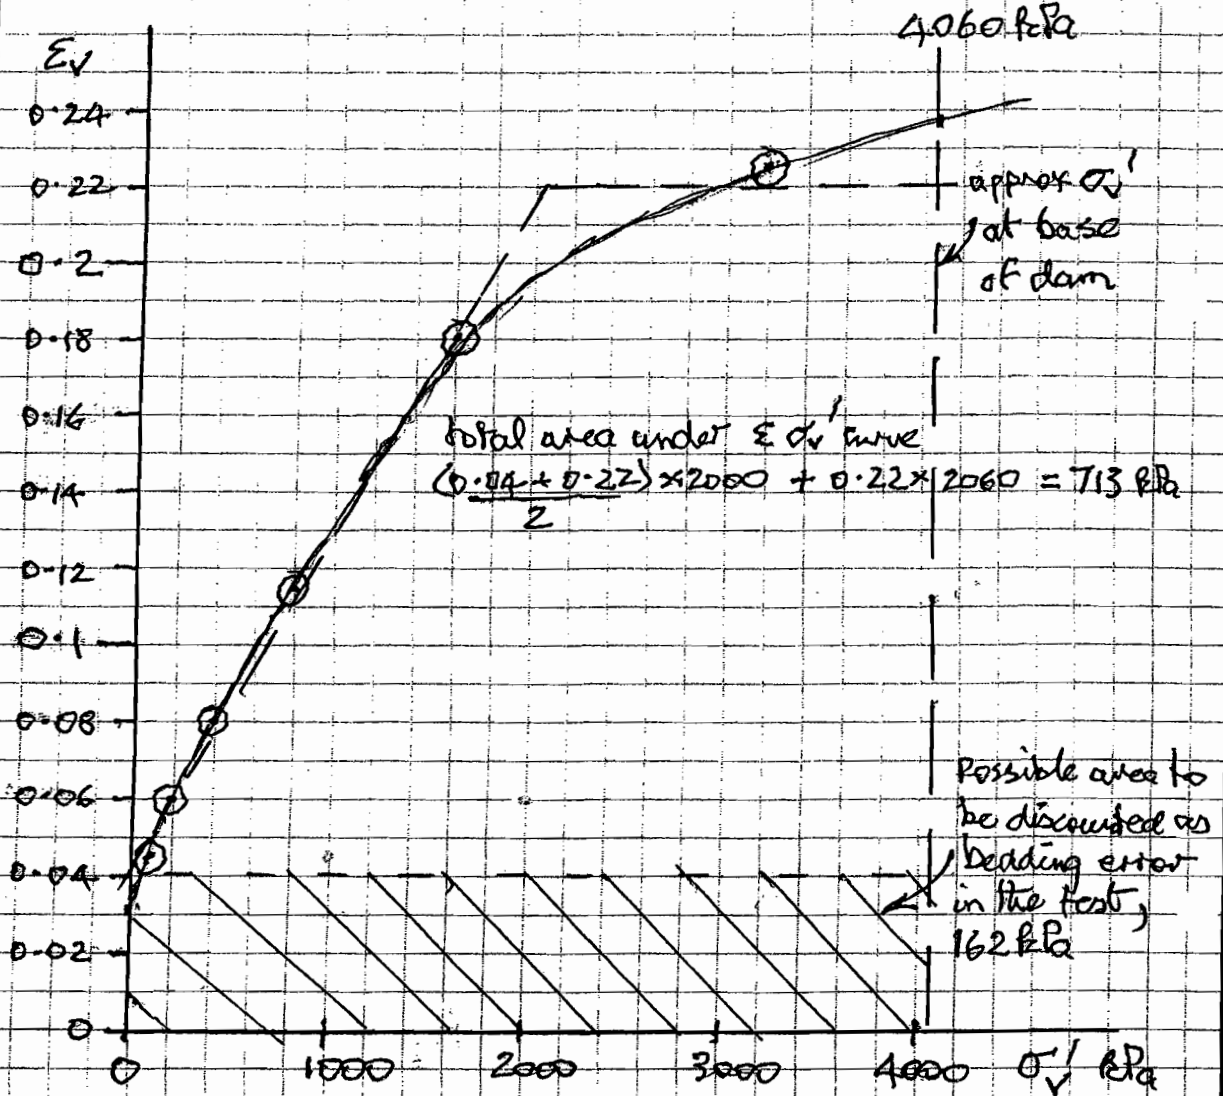 4060 kPa
εv
0.24
0.22
0.2
0.18
0.16
0.14
0.12
0.1
0.08
0.06
0.04
0.02
0
approx σv'
at base
of dam
total area under ε σv' curve
(0.04 + 0.22) × 2000 + 0.22 × 2060 = 713 kPa
2
Possible area to
be discounted as
bedding error
in the test,
162 kPa
0 1000 2000 3000 4000 σv' kPa